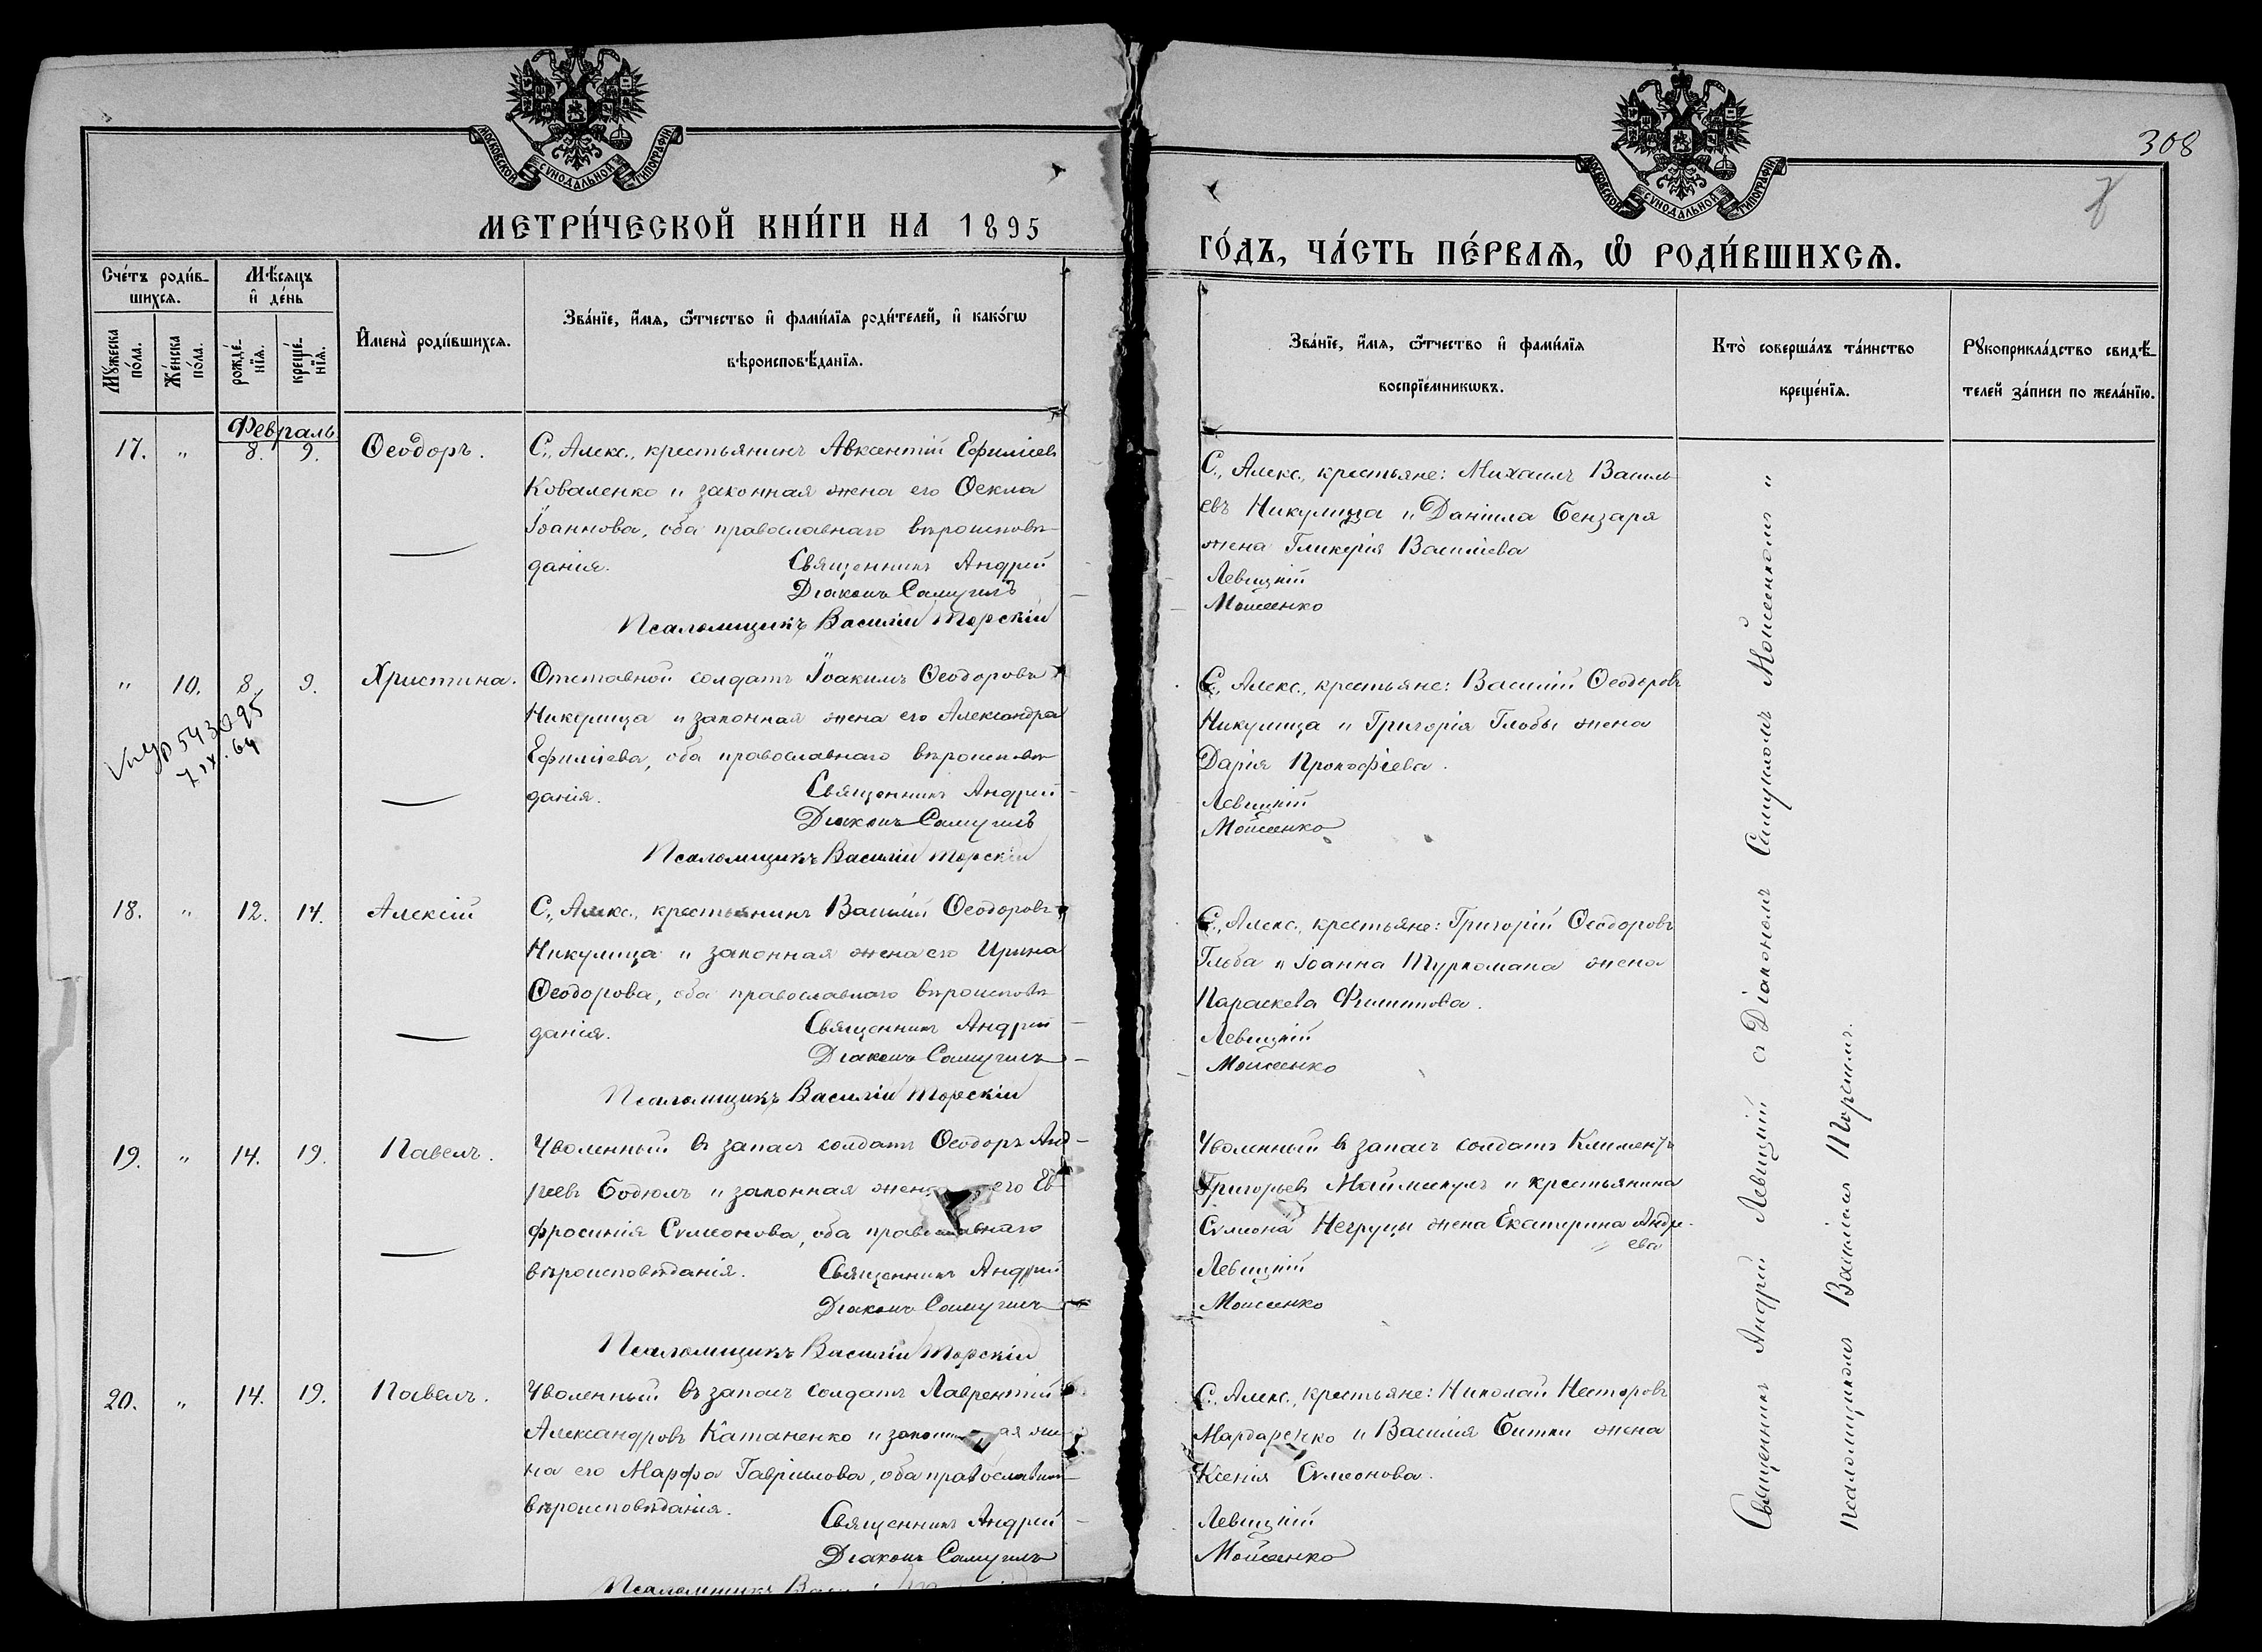 МОСКОВСКОЙ СѴНОДАЛЬНОЙ ТИПОГРАФІИ
МЕТРИ́ЧЕСКОЙ КНИ́ГИ НА 1895
Сче́тъ роди́в-
шихсѧ.
Мѣ́сѧцъ
и҆ де́нь
Мꙋ́жеска
по́ла.
Же́нска
по́ла.
рожде́-
нїѧ.
креще́-
нїѧ.
И҆мена̀ роди́вшихсѧ.
Зва́нїе, и҆́мѧ, ѻ҆́тчество и҆ фами́лїѧ роди́телей, и҆ како́гѡ
вѣроисповѣ́данїѧ.
Февраль
17. " 8. 9. Ѳеодоръ.
С., Алекс., крестьянинъ Авксентій Ефиміевъ
Коваленко и законная жена его Ѳекла
Іоаннова, оба православнаго вѣроисповѣ-
данія. Священникъ Андрей
Діаконъ Самуилъ
Псаломщикъ Василій Торскій
" 10. 8. 9. Христина.
Отставной солдатъ Іоакимъ Ѳеодоровъ
Никулица и законная жена его Александра
Ефиміева, оба православнаго вѣроисповѣ-
данія. Священникъ Андрей
Діаконъ Самуилъ
Псаломщикъ Василій Торскій
18. " 12. 14. Алексій
С., Алекс., крестьянинъ Василій Ѳеодоровъ
Никулица и законная жена его Ирина
Ѳеодорова, оба православнаго вѣроисповѣ-
данія. Священникъ Андрей
Діаконъ Самуилъ
Псаломщикъ Василій Торскій
19. " 14. 19. Павелъ.
Уволенный въ запасъ солдатъ Ѳеодоръ Анд-
реевъ Бодюлъ и законная жена его Ев-
фросинія Сѵмеонова, оба православнаго
вѣроисповѣданія. Священникъ Андрей
Діаконъ Самуилъ
Псаломщикъ Василій Торскій
20. " 14. 19. Павелъ.
Уволенный въ запасъ солдатъ Лаврентій
Александровъ Катаненко и законная же-
на его Марфа Гавріилова, оба православн
вѣроисповѣданія. Священникъ Андрей
Діаконъ Самуилъ
Псаломщикъ
308
МОСКОВСКОЙ СѴНОДАЛЬНОЙ ТИПОГРАФІИ
ГО́ДЪ, ЧА́СТЬ ПЕ́РВАѦ, Ѡ҆ РОДИ́ВШИХСѦ.
Зва́нїе, и҆́мѧ, ѻ҆́тчество и҆ фами́лїѧ
воспрїе́мникѡвъ.
Кто̀ соверша́лъ та́инство
креще́нїѧ.
Рꙋкоприкла́дство свидѣ́-
телей за́писи по жела́нїю.
С., Алекс., крестьяне: Михаилъ Василь-
евъ Никулица и Даніила Бензаря
жена Гликерія Василіева
Левицкій
Моисеенко
С., Алекс., крестьяне: Василій Ѳеодоровъ
Никулица и Григорія Глобы жена
Дарія Прокофіева.
Левицкій
Моисеенко
С., Алекс., крестьяне: Григорій Ѳеодоровъ
Глоба и Іоанна Туркомана жена
Параскева Филиппова.
Левицкій
Моисеенко
Уволенный въ запасъ солдатъ Климентъ
Григорьевъ Маймескулъ и крестьянина
Сѵмеона Негруцы жена Екатерина Андре-
ева
Левицкій
Моисеенко
С., Алекс., крестьяне: Николай Несторовъ
Мардаренко и Василія Битки жена
Ксенія Сѵмеонова.
Левицкій
Моисеенко
Священникъ Андрей Левицкій съ Діакономъ Самуиломъ Моисеенкомъ и
псаломщикомъ Василіемъ Торскимъ.